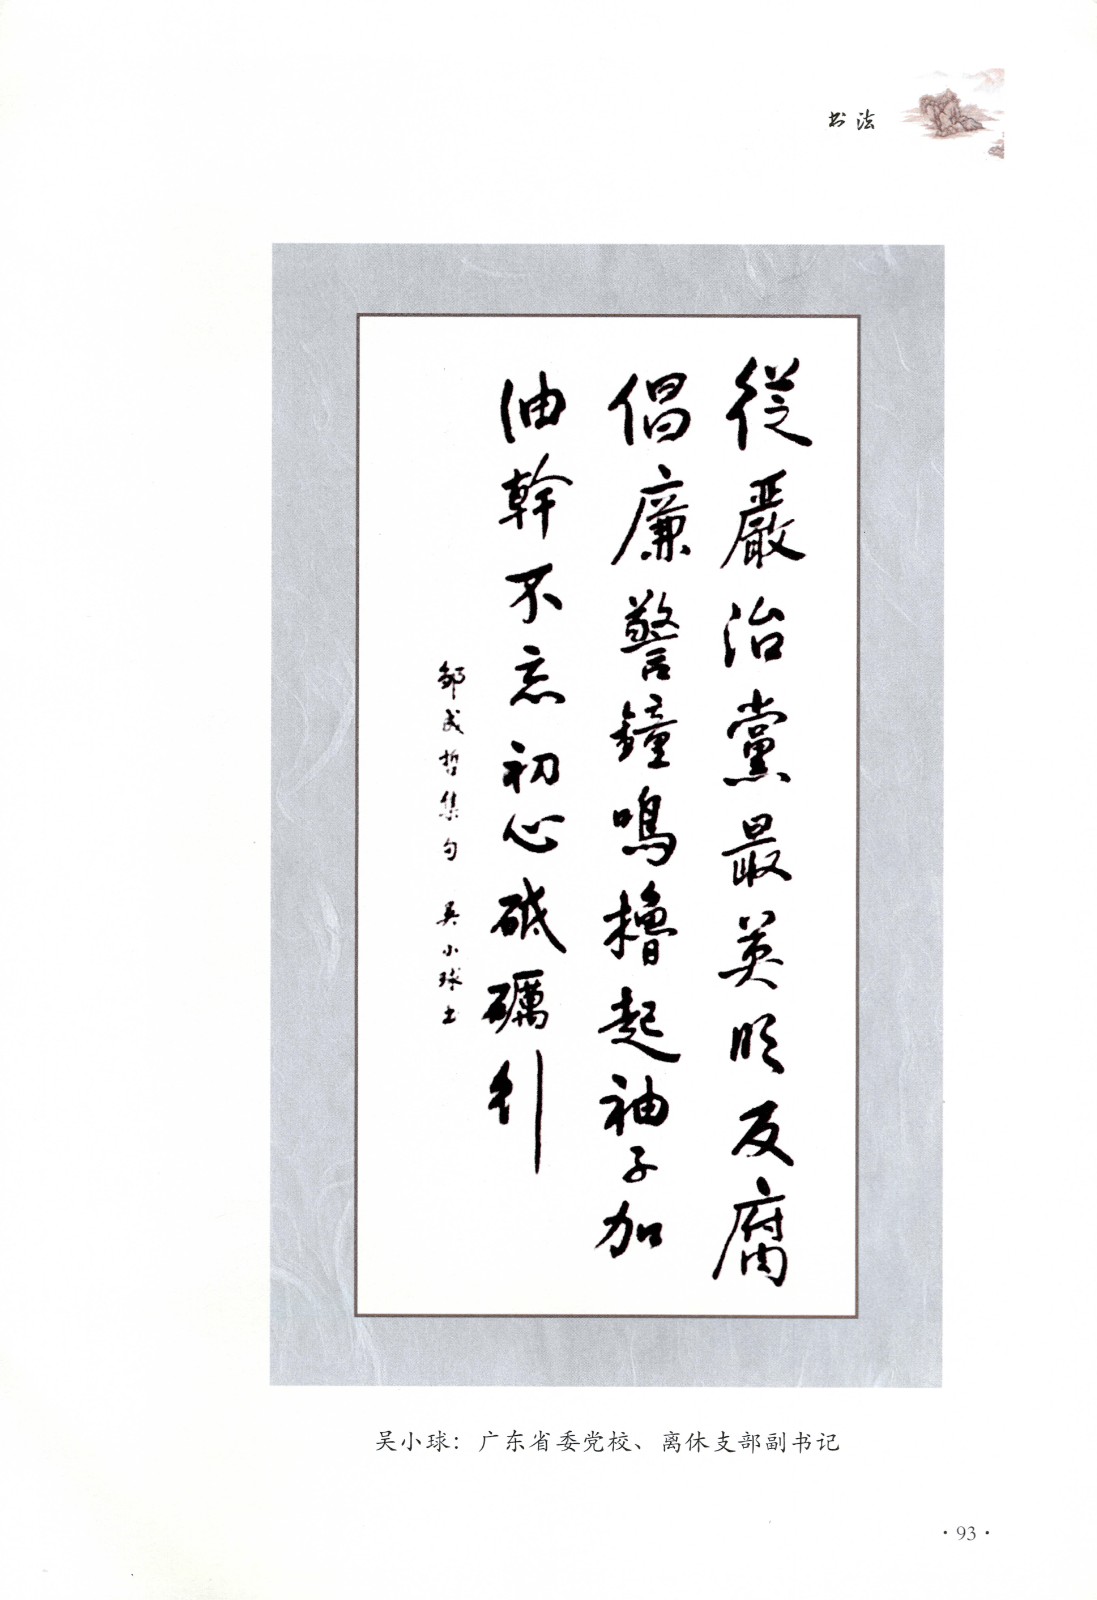 书法
從嚴治黨最英明反腐
倡廉警鐘鳴擼起袖子加
油幹不忘初心砥礪行
邹成哲集句 吴小球书
吴小球：广东省委党校、离休支部副书记
·93·